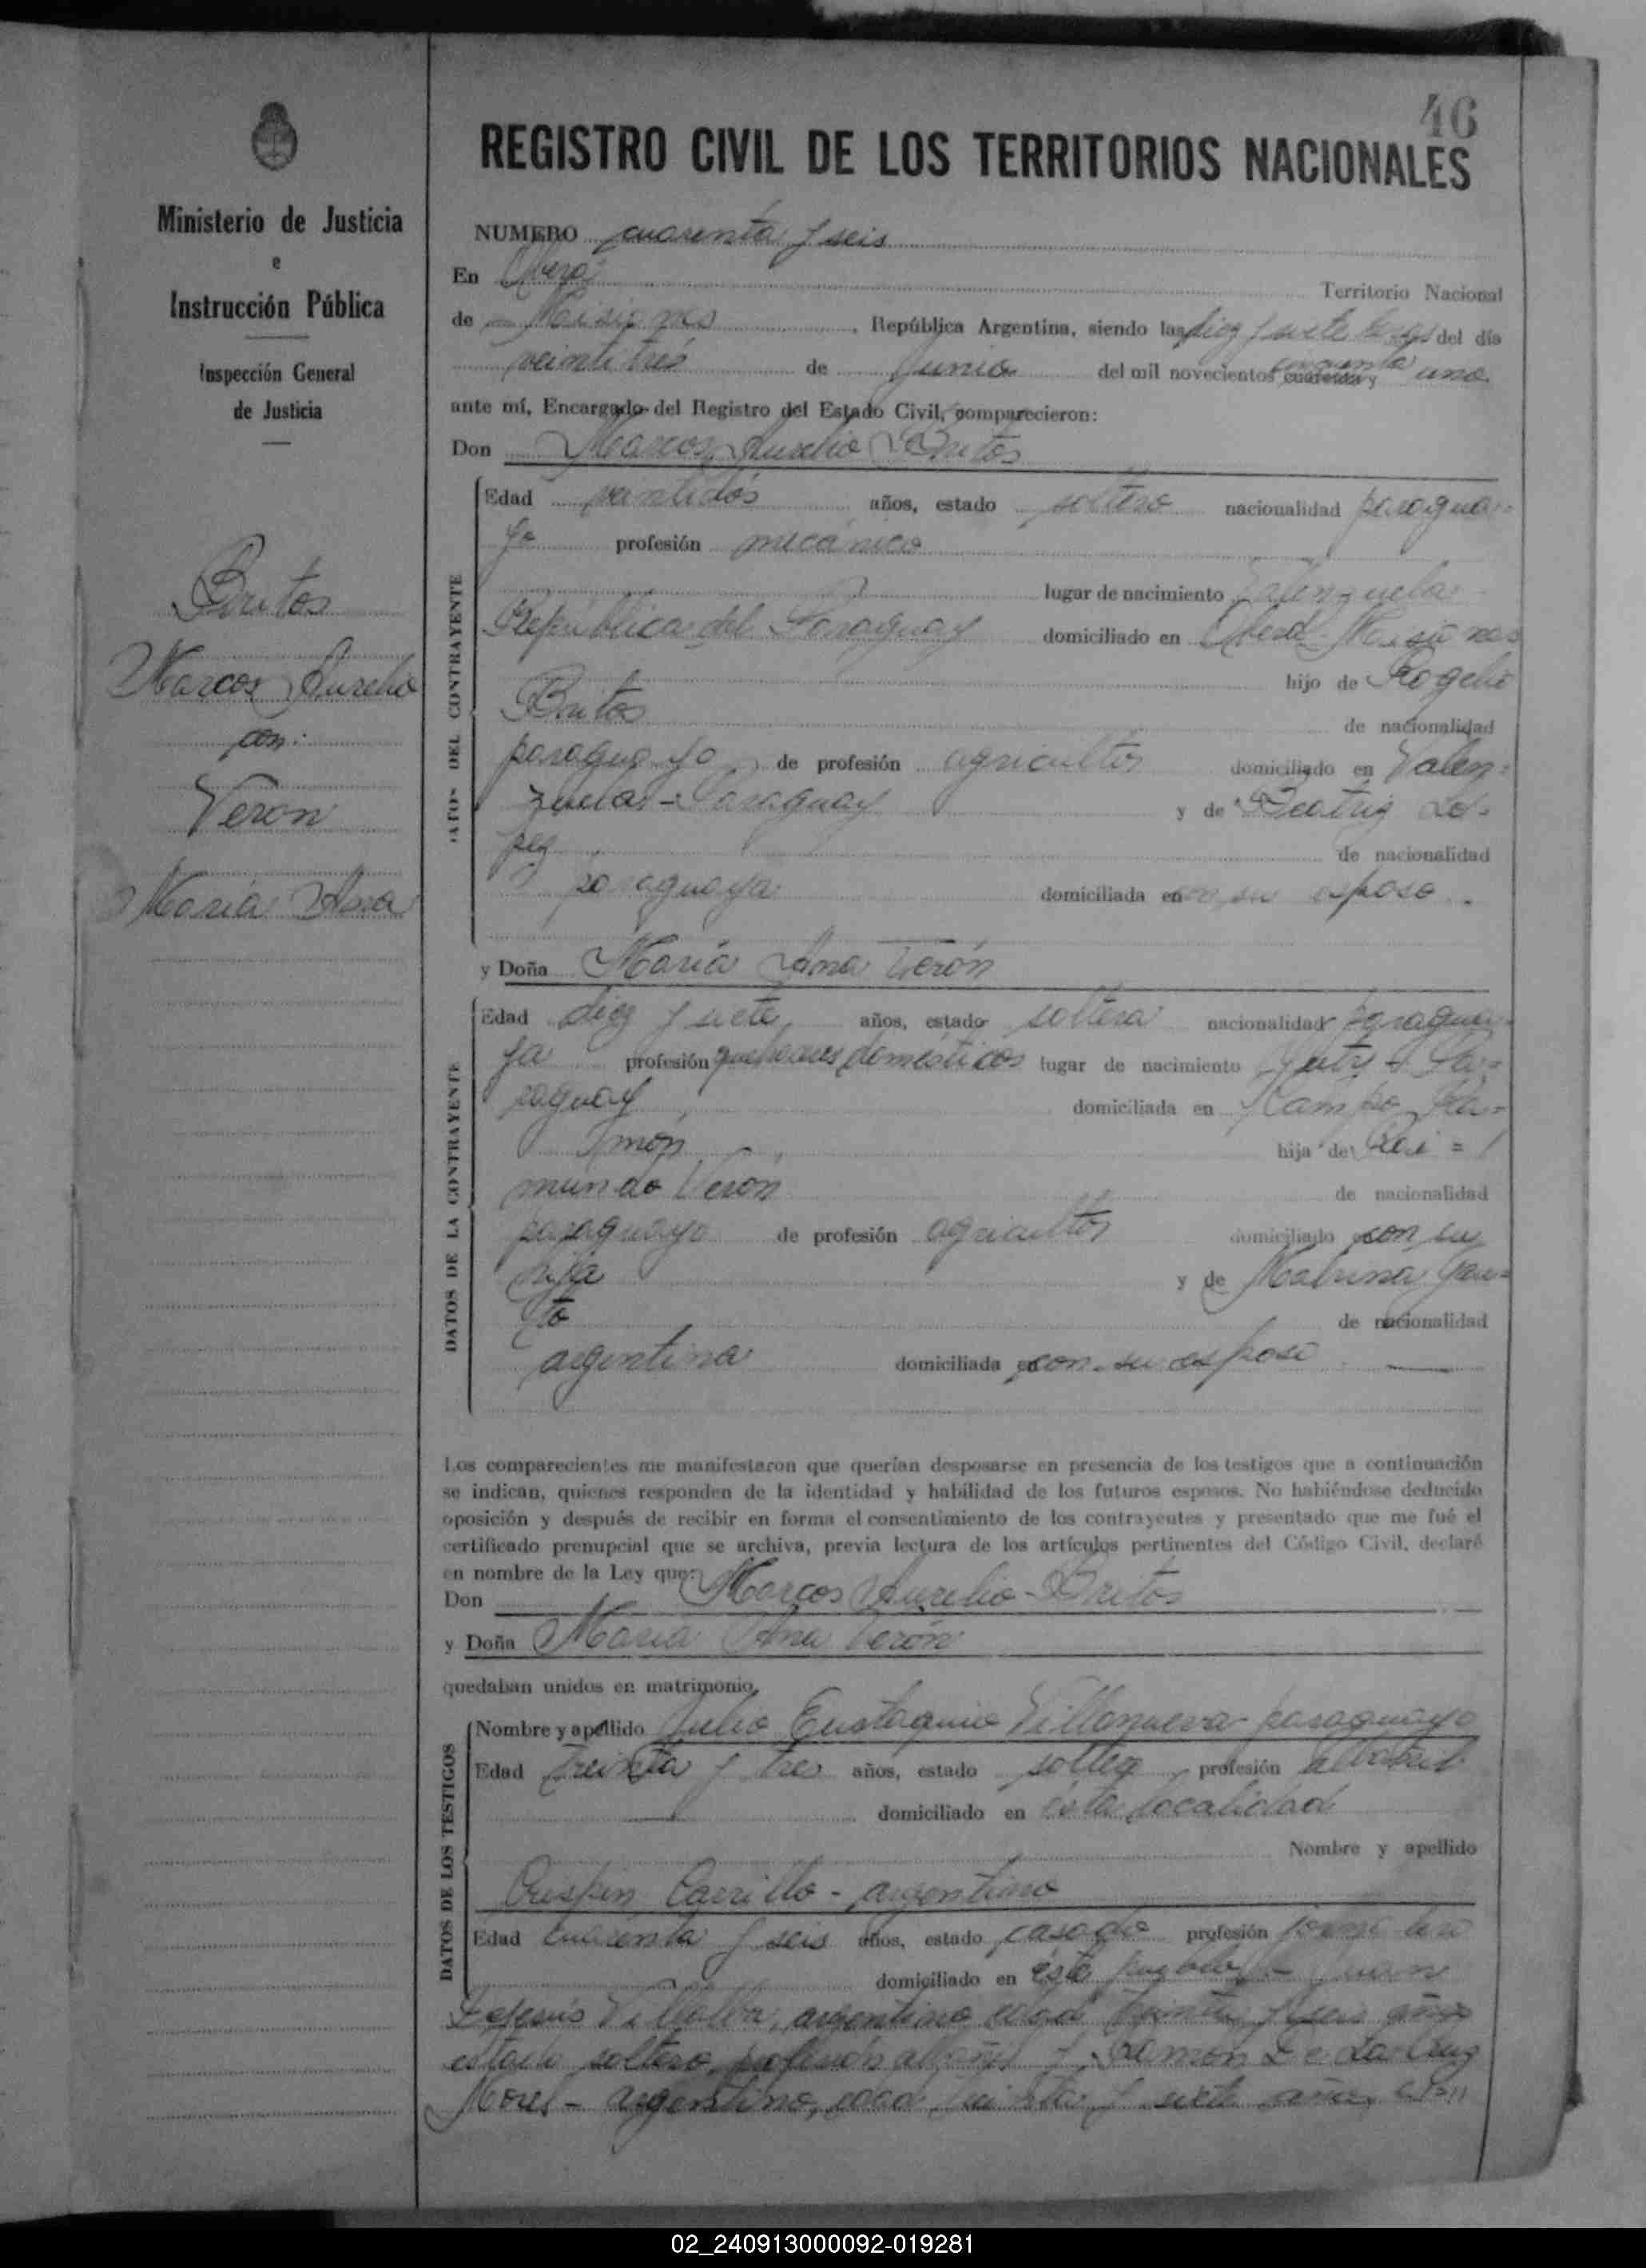 46
REGISTRO CIVIL DE LOS TERRITORIOS NACIONALES
Ministerio de Justicia
e
Instrucción Pública
Inspección General
de Justicia
Britos
Marcos Aurelio
con:
Veron
Maria Ana
NUMERO cuarenta y seis
En Oberá Territorio Nacional
de Misiones, República Argentina, siendo las diez y siete horas del día
veintitrés de Junio del mil novecientos cuarenta y cincuenta uno
ante mí, Encargado del Registro del Estado Civil, comparecieron:
Don Marcos Aurelio Britos
DATOS DEL CONTRAYENTE
Edad veintidós años, estado soltero nacionalidad paragua=
yo profesión mecánico
lugar de nacimiento Valenzuela
República del Paraguay domiciliado en Oberá Misiones
hijo de Rogelio
Britos de nacionalidad
paraguayo de profesión agricultor domiciliado en Valen=
zuela - Paraguay y de Beatriz Ló-
pez de nacionalidad
paraguaya domiciliada en con su esposo
y Doña María Ana Verón
DATOS DE LA CONTRAYENTE
Edad diez y siete años, estado soltera nacionalidad paragua-
ya profesión quehaceres domésticos lugar de nacimiento Yuty - Pa=
raguay domiciliada en Campo Ra=
món hija de Rai=
mundo Verón de nacionalidad
paraguayo de profesión agricultor domiciliado con su
hija y de
de nacionalidad
argentina domiciliada en con su esposo
Los comparecientes me manifestaron que querían desposarse en presencia de los testigos que a continuación
se indican, quienes responden de la identidad y habilidad de los futuros esposos. No habiéndose deducido
oposición y después de recibir en forma el consentimiento de los contrayentes y presentado que me fué el
certificado prenupcial que se archiva, previa lectura de los artículos pertinentes del Código Civil, declaré
en nombre de la Ley que:
Don Marcos Aurelio Britos
y Doña María Ana Verón
quedaban unidos en matrimonio
DATOS DE LOS TESTIGOS
Nombre y apellido Julio Eustaquio Villanueva paraguayo
Edad treinta y tres años, estado soltero, profesión albañil
domiciliado en esta localidad
Nombre y apellido
Crispin Carrillo - argentino
Edad cuarenta y seis años, estado casado profesión jornalero
domiciliado en este pueblo - Juan
De Jesús Villalba, argentino edad treinta y seis años
estado soltero, profesión albañil y Ramón De La Cruz
Morel - argentino, edad treinta y siete años,
02_240913000092-019281